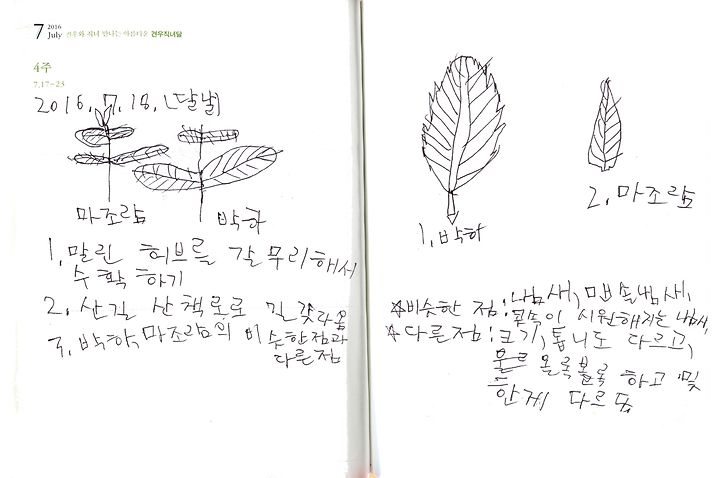 7 2016 July 견우와 직녀 만나는 아름다운 견우직녀달
4주
7.17~23
2016. 7. 18. (달날)
마조람
박하
1. 말린 허브를 갈무리해서
수확 하기
2. 산길 산책로로
3. 박하, 마조람의 비슷한점과
다른점
1. 박하
2. 마조람
☆비슷한 점: 냄새, 맨 손냄새,
콧속이 시원해지는 냄새,
☆다른점: 크기, 톱니도 다르고,
올록볼록 하고 밋
한게 다르다